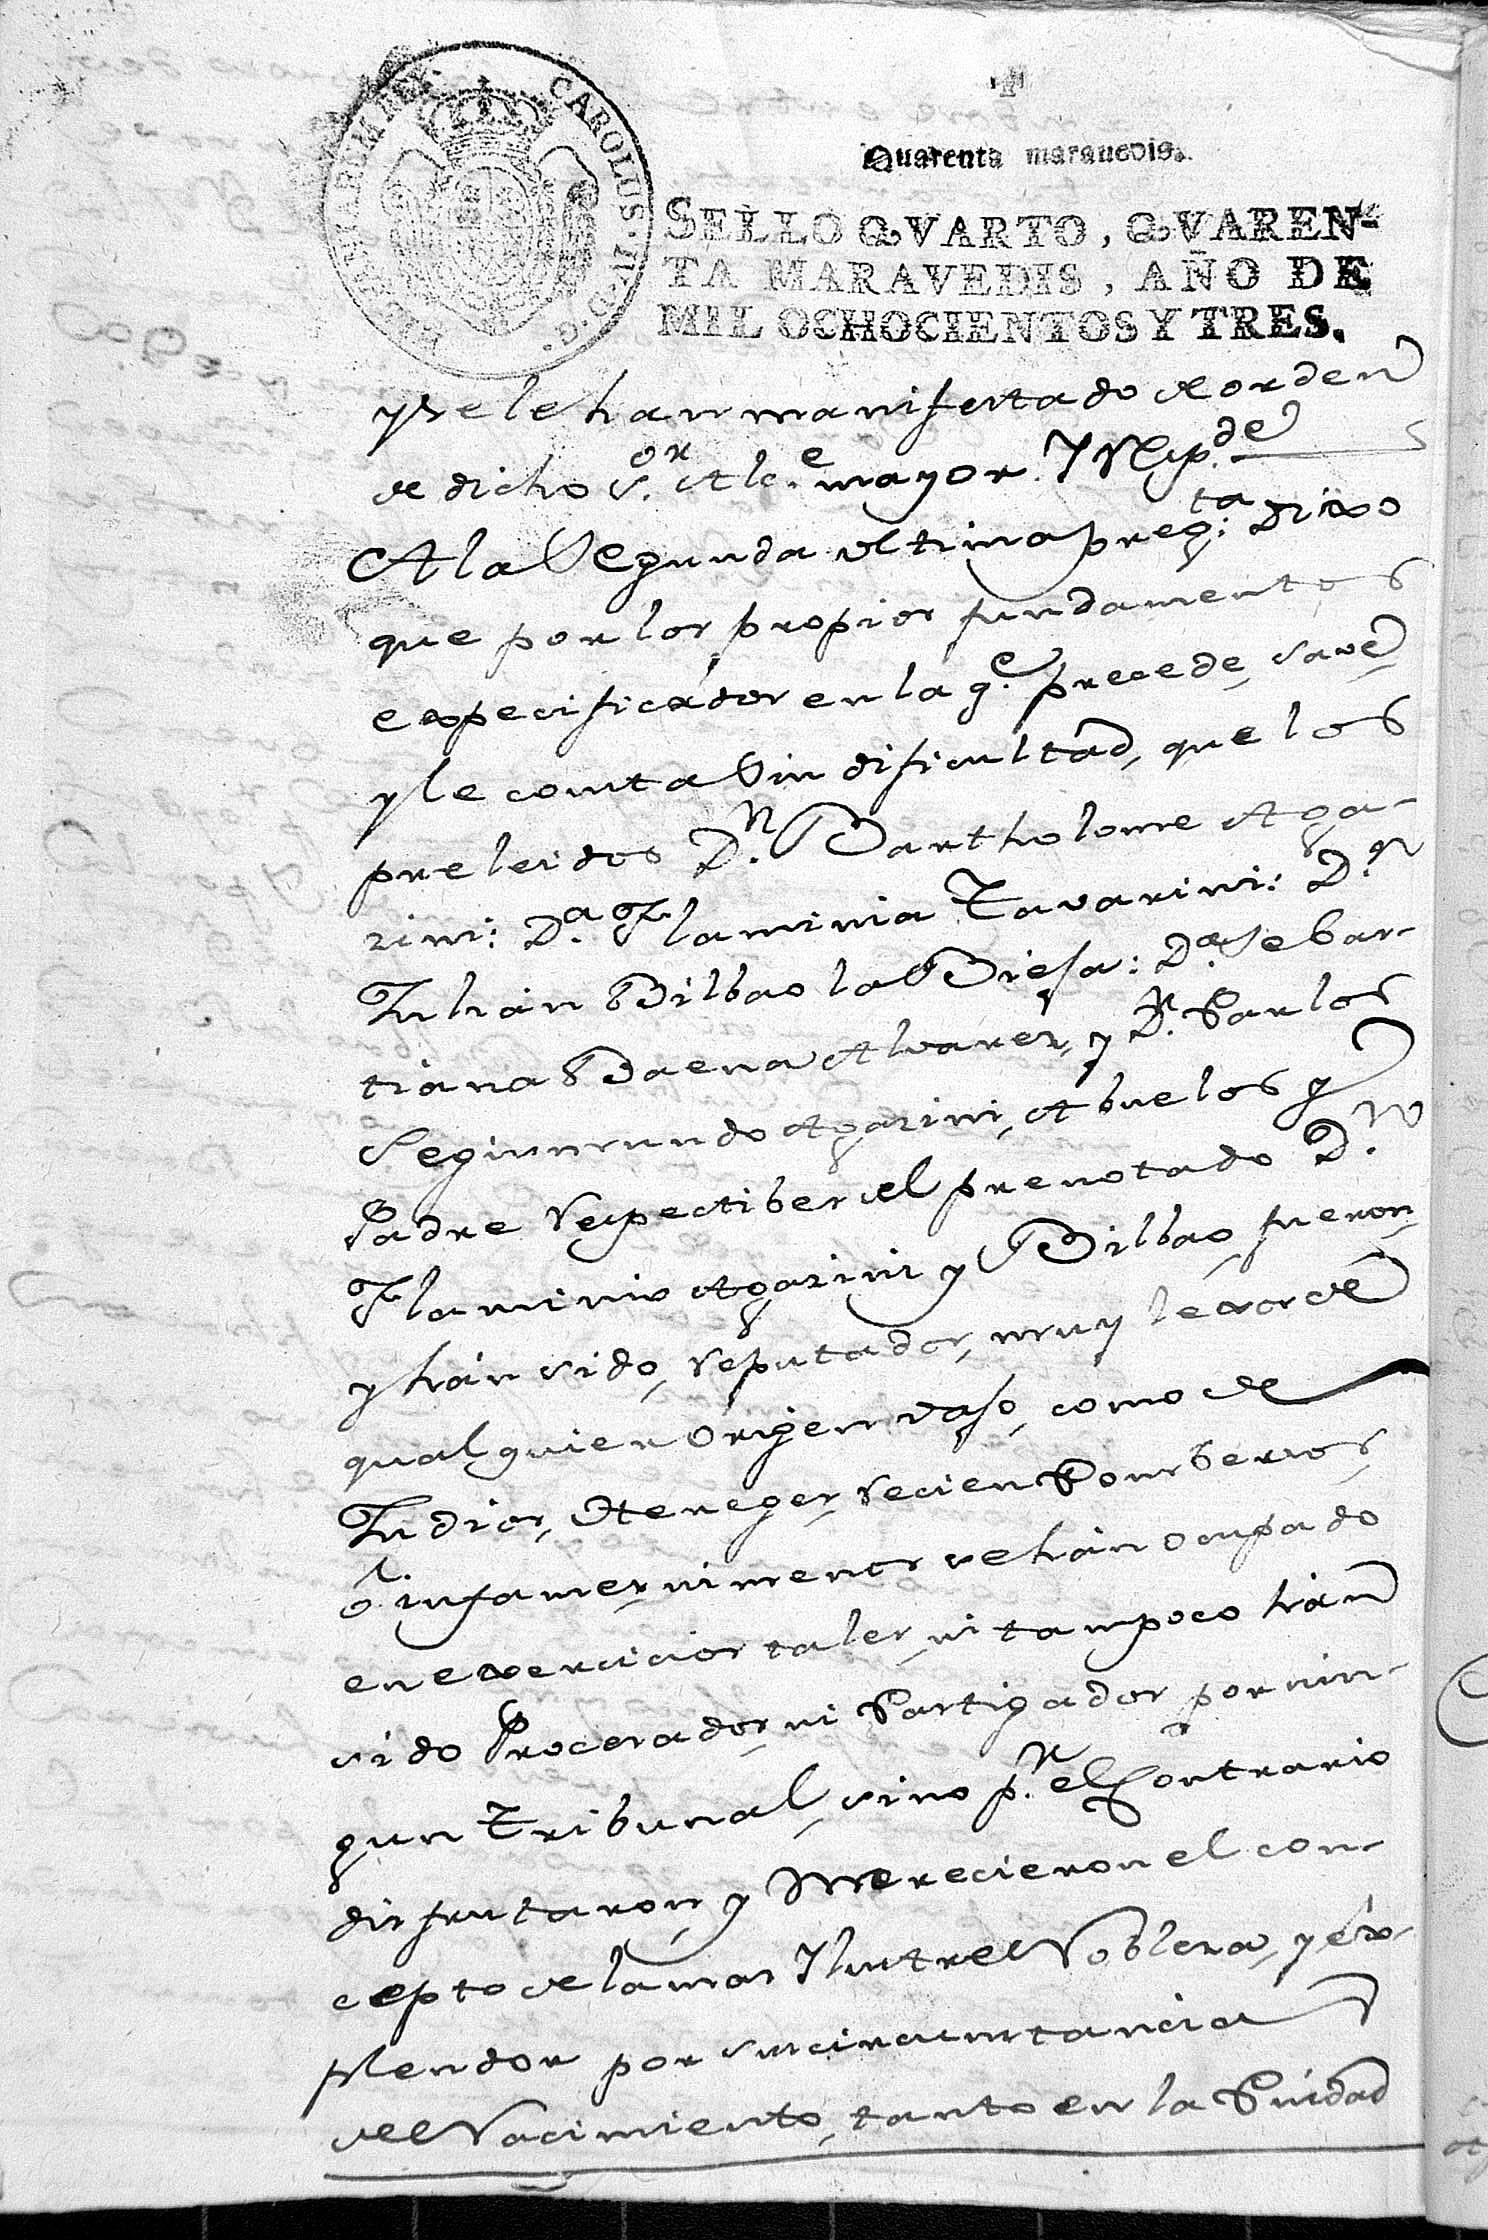 CAROLUS · IV · D · G · HISPANIARUM REX ·
Quarenta marauedis.
SELLO QVARTO, QVAREN-
TA MARAVEDIS, AÑO DE
MIL OCHOCIENTOS Y TRES.
y se le han manifestado de orden
de dicho S.or Alc.e mayor. Y Resp.de
A la Segunda ultima preg.ta Dixo
que por los propios fundamentos
expecificados en la q.e precede, save
y le consta Sin dificultad, que los
preleidos D.n Bartholome Aga-
rini: D.a Flaminia Tavarini: D.n
Julian Bilbao la Viesa: D.a Sebas-
tiana Baena Alvarez, y D.n Carlos
Segismundo Agarini, Abuelos y
Padre Respectibes del prenotado D.n
Flaminio Agarini y Bilbao, fueron
y hán sido, Reputados, muy lexos de
qualquier Origen vaso, como de
Judios, Hereges, Recien Combersos
ó infames, ni menos se hán ocupado
en exercicios tales, ni tampoco hán
sido Procesados, ni Castigados por nin-
gun Tribunal, sino p.r el Contrario
disfrutaron, y Merecieron el con-
cepto de la mas Ylustre Nobleza, y es-
plendor por su circunstancia
de Nacimiento, tanto en la Ciudad